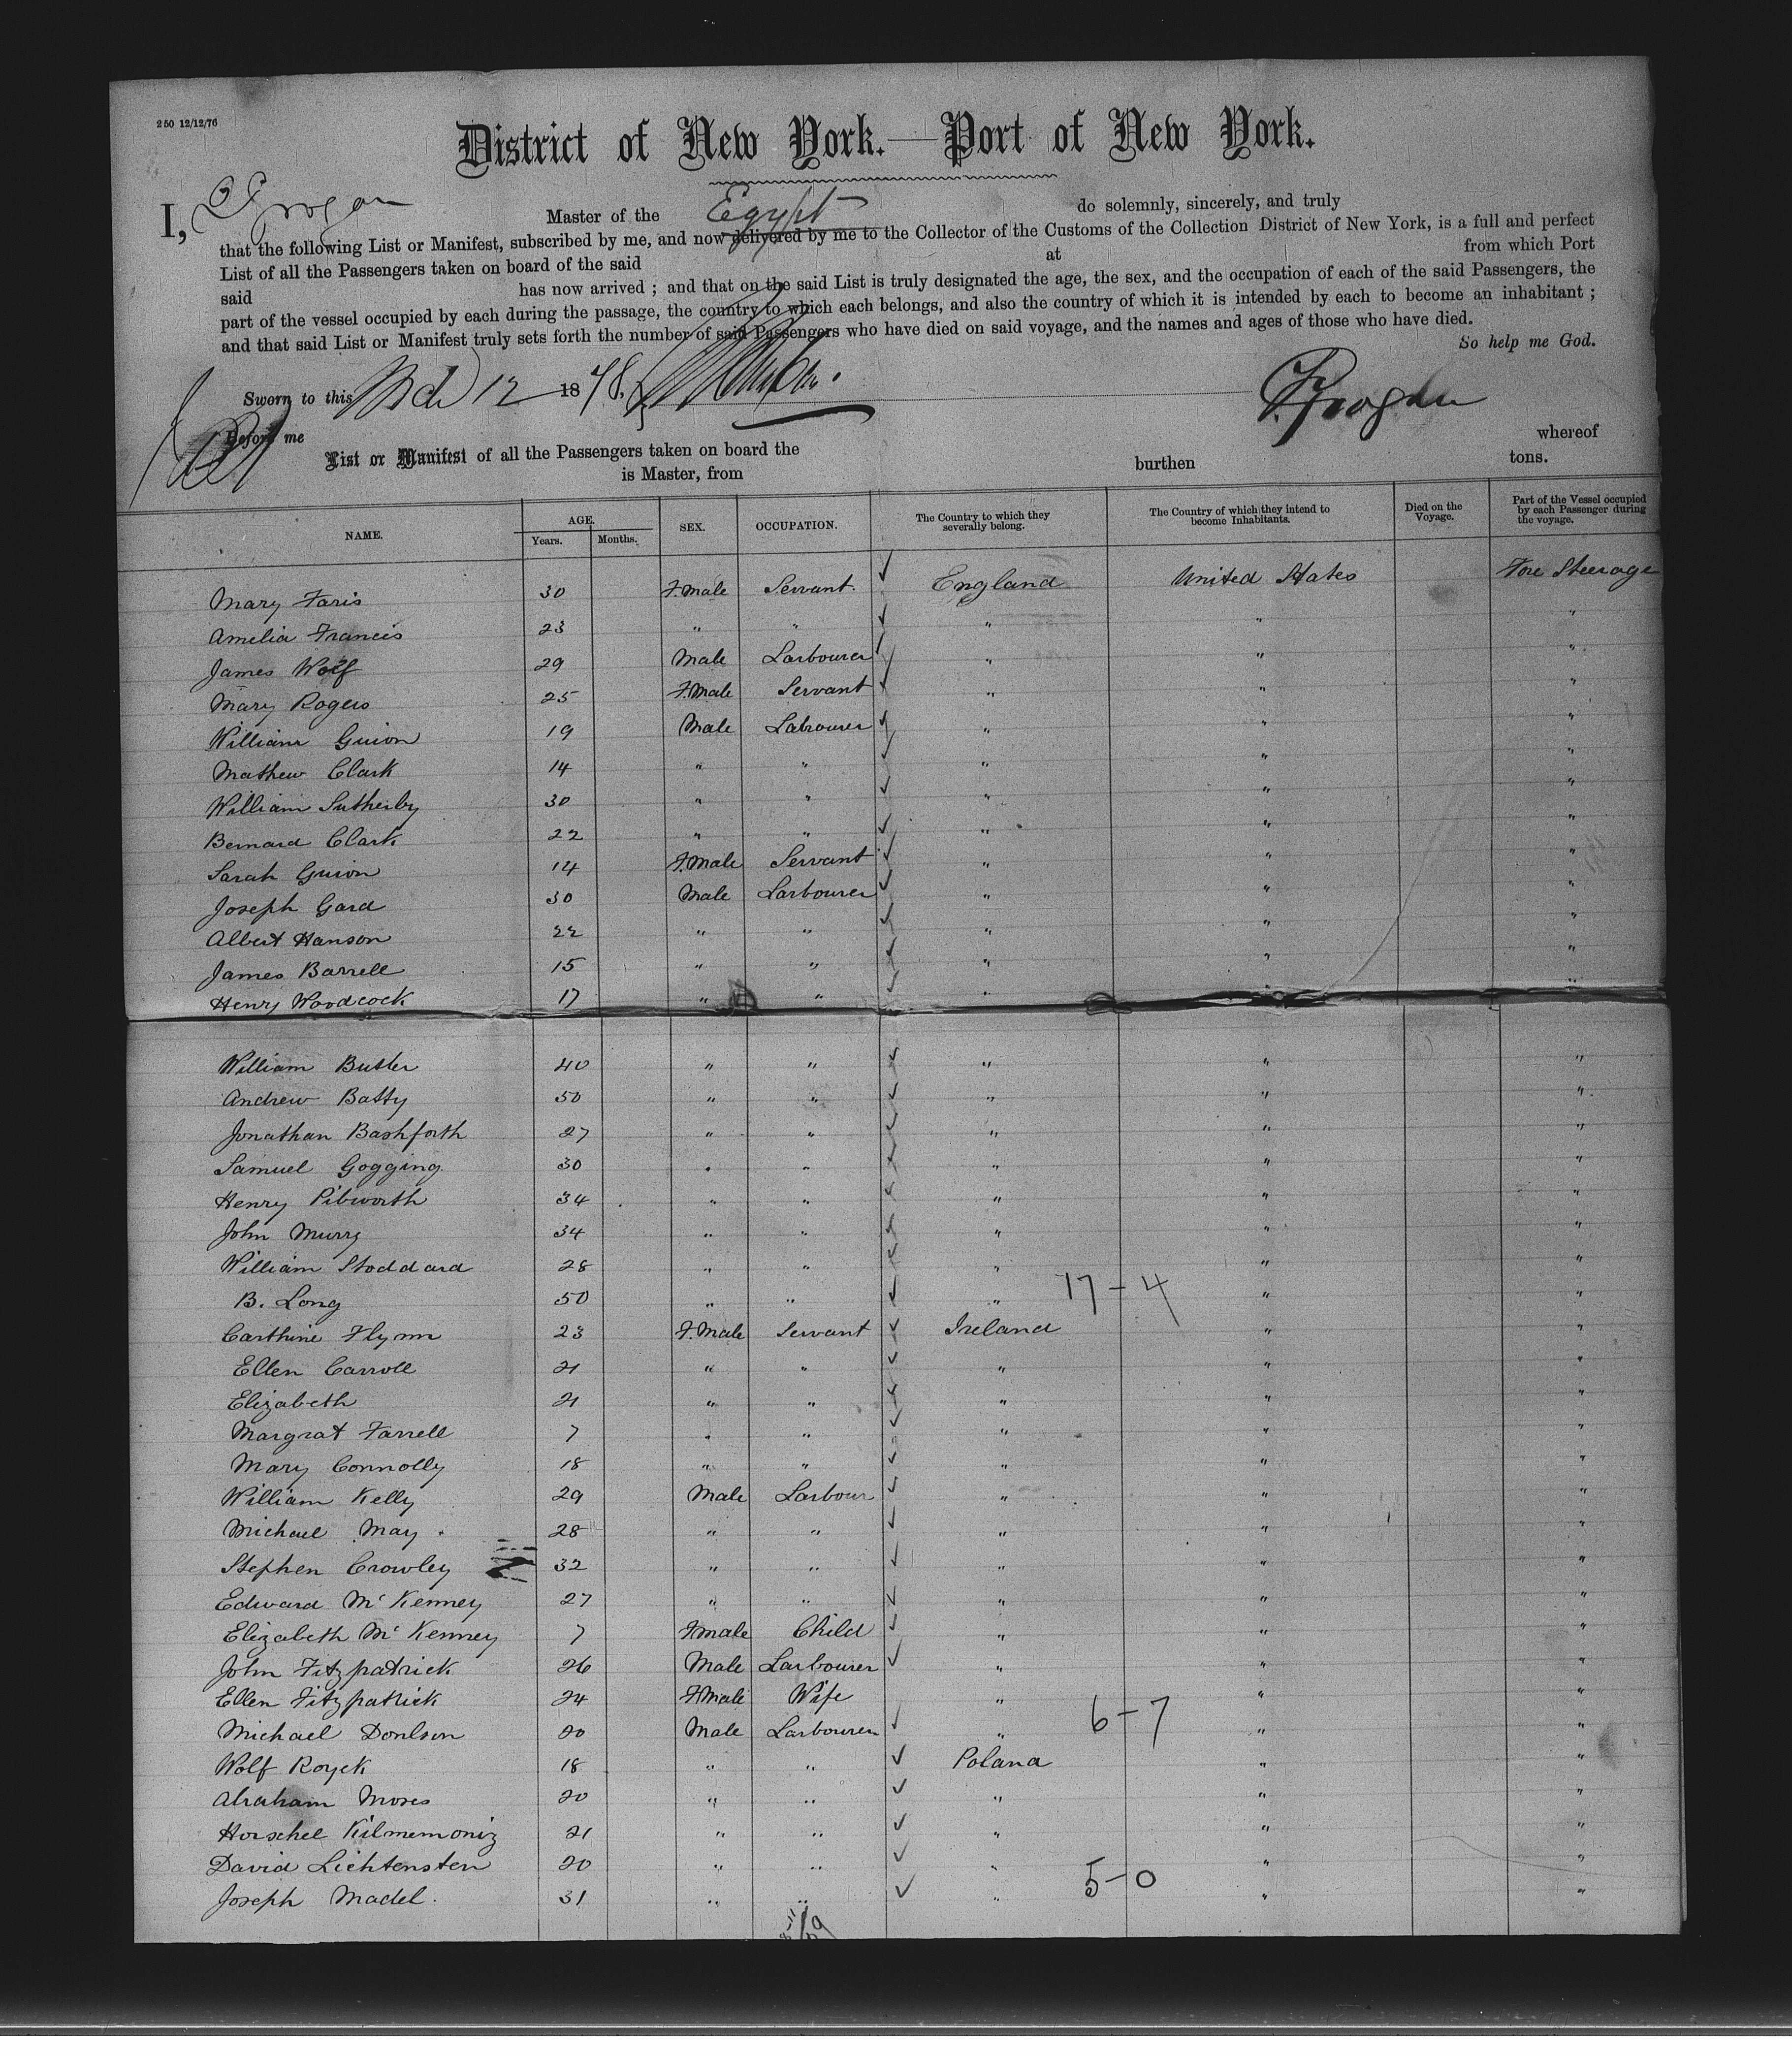 250 12/12/76
District of New York.—Port of New York.
I, Grogan Master of the Egypt do solemnly, sincerely, and truly
that the following List or Manifest, subscribed by me, and now delivered by me to the Collector of the Customs of the Collection District of New York, is a full and perfect
List of all the Passengers taken on board of the said at from which Port
said has now arrived ; and that on the said List is truly designated the age, the sex, and the occupation of each of the said Passengers, the
part of the vessel occupied by each during the passage, the country to which each belongs, and also the country of which it is intended by each to become an inhabitant ;
and that said List or Manifest truly sets forth the number of said Passengers who have died on said voyage, and the names and ages of those who have died.
So help me God.
Sworn to this 12 1878. Grogan
Before me
List or Manifest of all the Passengers taken on board the whereof
is Master, from burthen tons.
NAME. AGE. Years. Months. SEX. OCCUPATION. The Country to which they severally belong. The Country of which they intend to become Inhabitants. Died on the Voyage. Part of the Vessel occupied by each Passenger during the voyage.
Mary Faris 30 F.Male Servant. ✓ England United States Fore Steerage
Amelia Francis 23 " " ✓ " " "
James Wolf 29 Male Larbourer ✓ " " "
Mary Rogers 25 F.Male Servant ✓ " " "
William Guion 19 Male Labrourer ✓ " " "
Mathew Clark 14 " " ✓ " " "
William Sutherby 30 " " ✓ " " "
Bernard Clark 22 " " ✓ " " "
Sarah Guion 14 F.Male Servant ✓ " " "
Joseph Gard 30 Male Larbourer ✓ " " "
Albert Hanson 22 " " ✓ " " "
James Barrell 15 " " ✓ " " "
Henry Woodcock 17 " " ✓ " " "
William Butler 40 " " ✓ " " "
Andrew Batty 50 " " ✓ " " "
Jonathan Bashforth 27 " " ✓ " " "
Samuel Gogging 30 " " ✓ " " "
Henry Pibworth 34 " " ✓ " " "
John Murry 34 " " ✓ " " "
William Stoddard 28 " " ✓ " " "
B. Long 50 " " ✓ " 17-4 " "
Carthine Flynn 23 F.Male Servant ✓ Ireland " "
Ellen Carroll 21 " " ✓ " " "
Elizabeth 21 " " ✓ " " "
Margrat Farrell 7 " " ✓ " " "
Mary Connolly 18 " " ✓ " " "
William Kelly 29 Male Larbour ✓ " " "
Michael May . 28 " " ✓ " " "
Stephen Crowley 32 " " ✓ " " "
Edward McKenney 27 " " ✓ " " "
Elizabeth McKenney 7 Fmale Child ✓ " " "
John Fitzpatrick 26 Male Larbourer ✓ " " "
Ellen Fitzpatrick 24 Fmale Wife " " "
Michael Donlson 20 Male Larbourer ✓ " 6-7 " "
Wolf Royek 18 " " ✓ Poland " "
Abraham Moses 20 " " ✓ " " "
Horschel Kilmemoniz 21 " " ✓ " " "
David Lichtensten 20 " " ✓ " " "
Joseph Madel. 31 " " ✓ " 5-0 " "